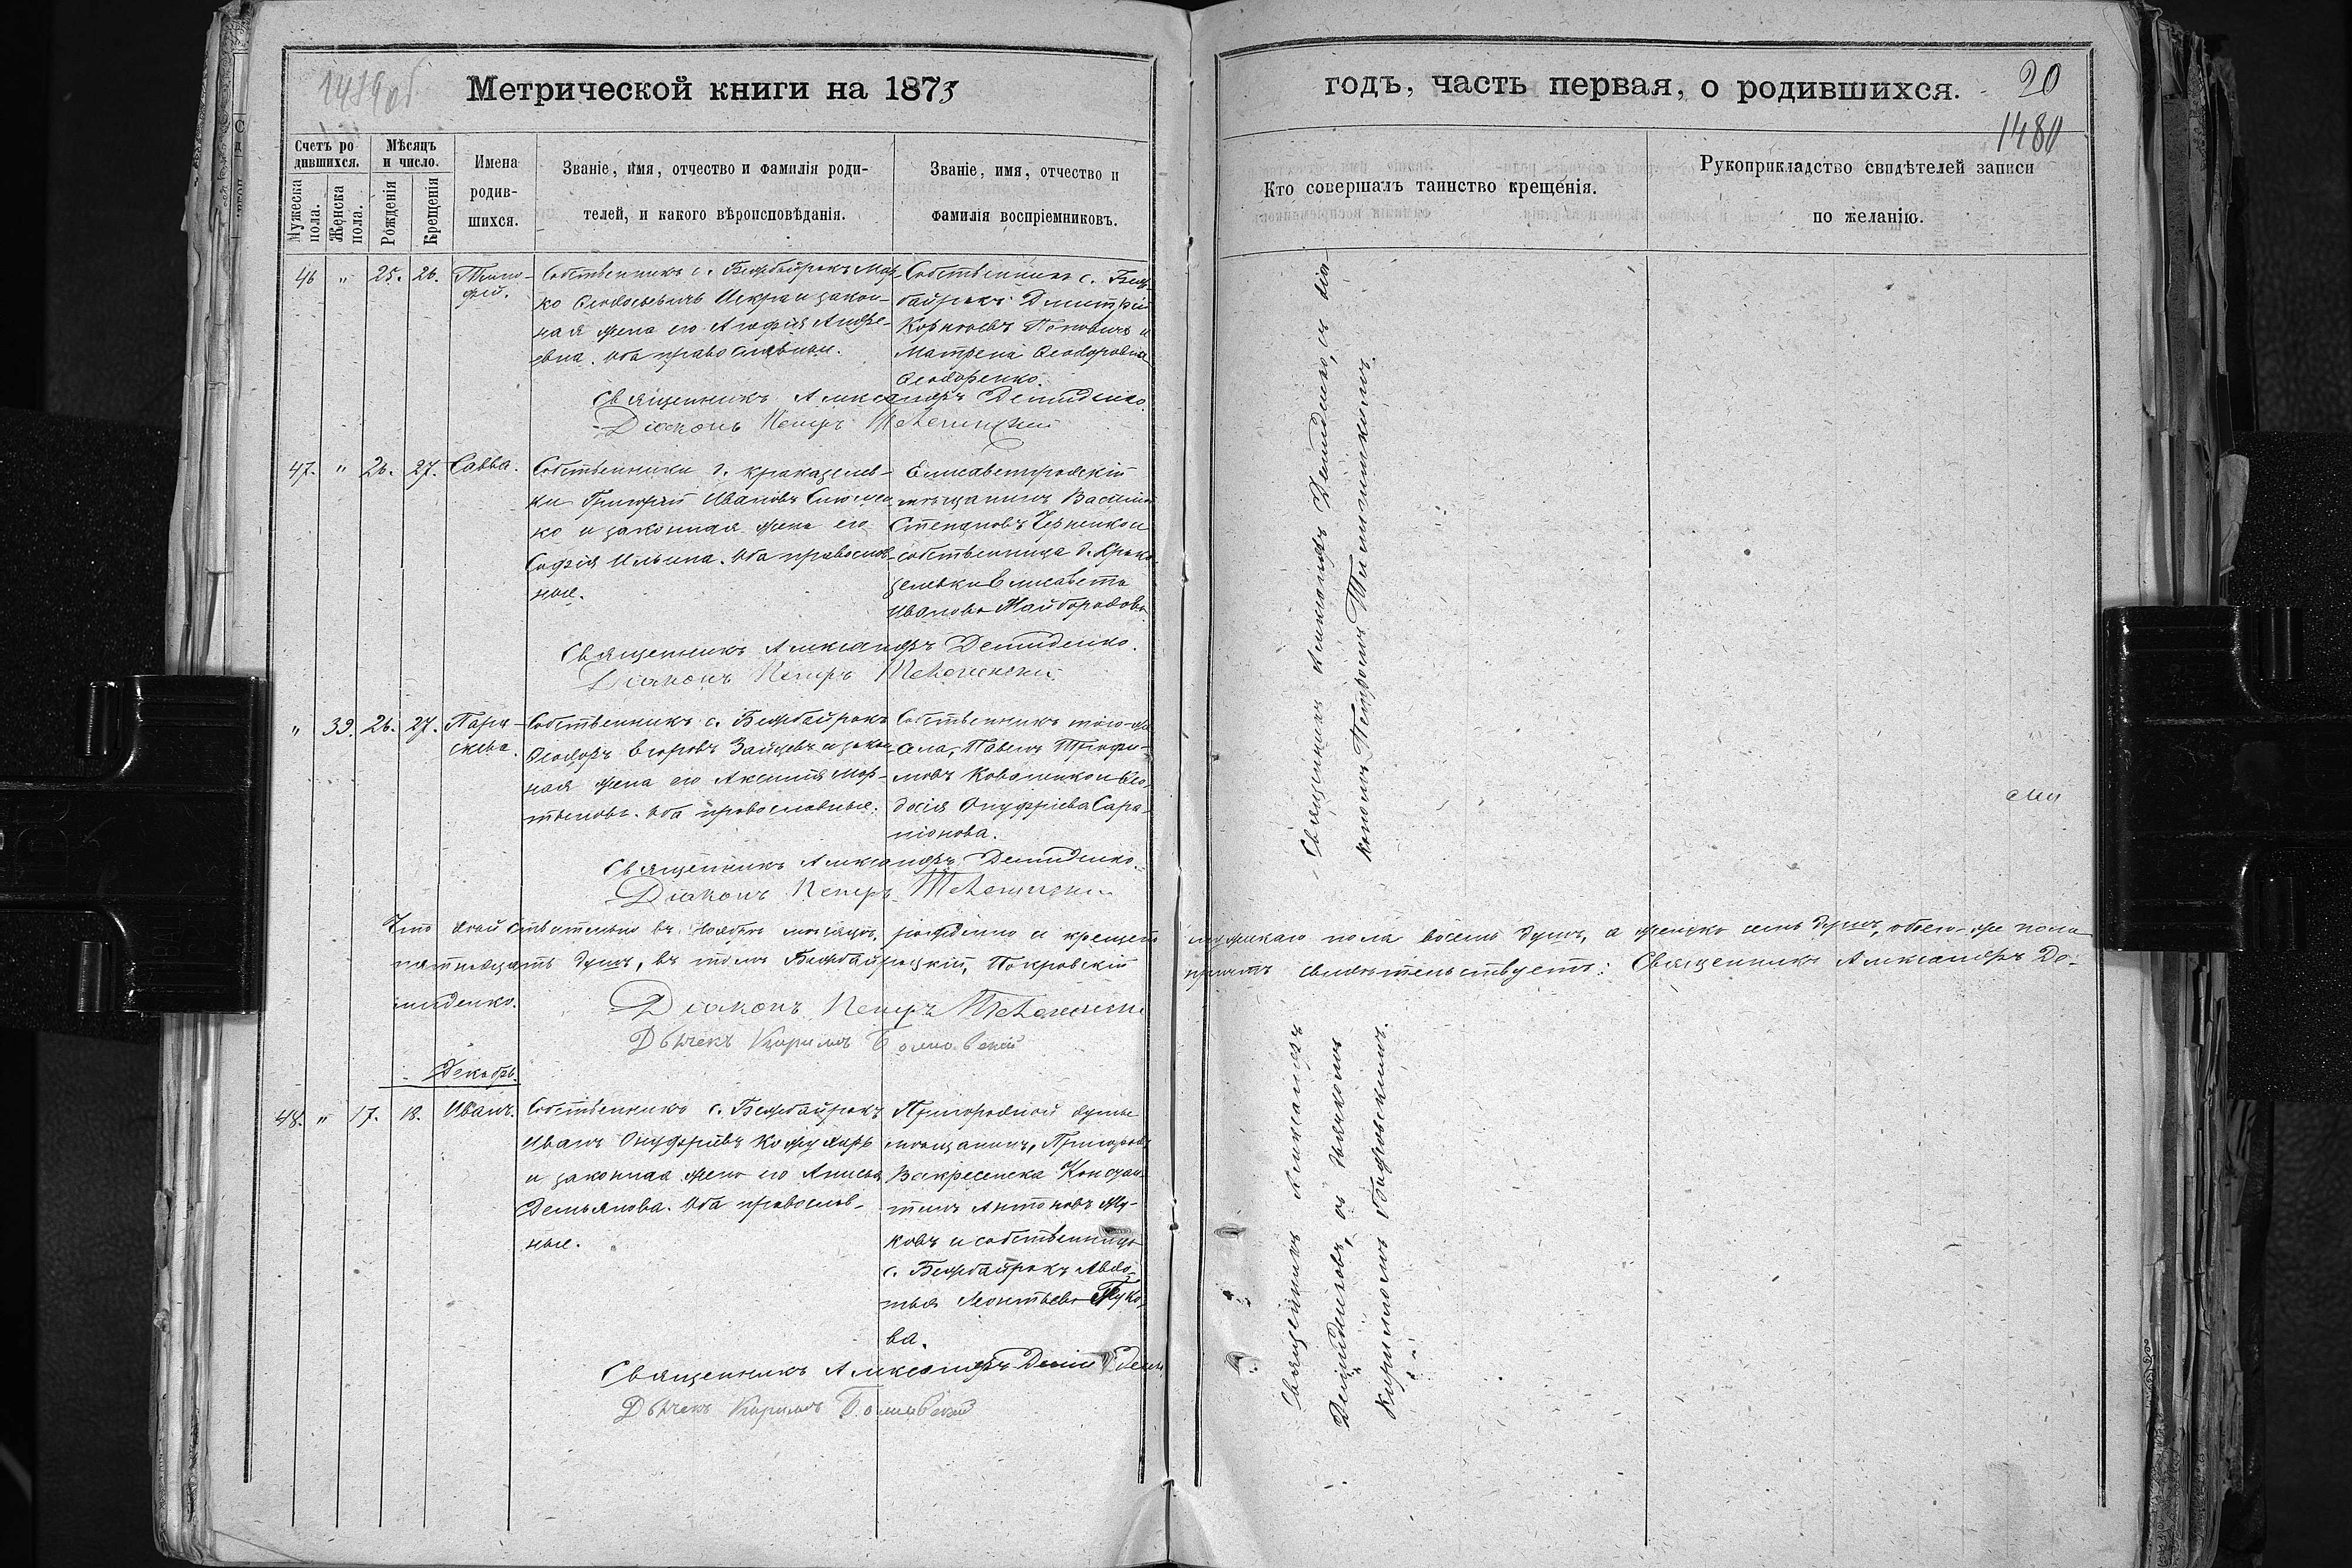 1479об
Метрической книги на 1873
годъ, часть первая, о родившихся.
20
1480
Счетъ родившихся.
Мужеска пола.
Женска пола.
Мѣсяцъ и число.
Рожденія
Крещенія
Имена родившихся.
Званіе, имя, отчество и фамилія родителей, и какого вѣроисповѣданія.
Званіе, имя, отчество и фамилія воспріемниковъ.
Кто совершалъ таинство крещенія.
Рукоприкладство свидѣтелей записи по желанію.
46 " 25. 26. Тимо-
фей.
Собственникъ с. Бежбайракъ Мар-
ко Ѳеодосьевъ Искра и закон-
ная жена его Агафія Андре-
евна. Оба православныи.
Собственникъ с. Беж-
байракъ Дмитрій
Корнѣевъ Поповъ и
Матрена Ѳеодорова
Ѳеодоренко.
Священникъ Александръ Демиденко.
Діаконъ Петръ
47. " 26. 27. Савва.
Собственники д. Краказелев-
ки Григорій Ивановъ
ко и законная жена его
Софія Ильина. Оба православ-
ные.
Елисаветградскій
мѣщанинъ Василій
Степановъ Черненко и
собственница д. Крака-
зелевки Елисавета
Иванова Майбородова
Священникъ Александръ Демиденко.
Діаконъ Петръ
" 39. 26. 27. Пара-
скева.
Собственникъ с. Бежбайракъ
Ѳеодоръ Егоровъ Зайцевъ и закон-
ная жена его Аксинія Мар-
тынова. Оба православные.
Собственникъ того-же
села, Павелъ Трофи-
мовъ Коваленко и Ѳео-
досія Онуфріева Сара-
піонова.
Священникъ Александръ Демиденко.
Діаконъ Петръ
Что дѣйствительно въ Ноябрѣ мѣсяцѣ, рождено и крещено мужескаго пола восемь душъ, а женско семь душъ, обоего-же пола
пятнадцать душъ, въ томъ Бежбайрацкій, Покровскій причтъ свидѣтельствуетъ: Священникъ Александръ Де-
миденко.
Діаконъ Петръ
Дьячекъ Кирилъ
Декабрь.
48. " 17. 18. Иванъ.
Собственникъ с. Бежбайракъ
Иванъ Онуфріевъ Кожухарь
и законная жена его Анисья
Демьянова. Оба православ-
ные.
Пригородной думы
мѣщанинъ, Пригорода
Воскресенска Констан-
тинъ Антоновъ Жу-
ковъ и собственница
с. Бежбайракъ Авдо-
тья Леонтьева
ва.
Священникъ Александръ Демиденко
Дьячекъ Кирилъ
Священникъ Александръ Демиденко, съ діа-
кономъ Петромъ
Священникъ Александръ
Демиденковъ, съ дьячкомъ
Кирилломъ